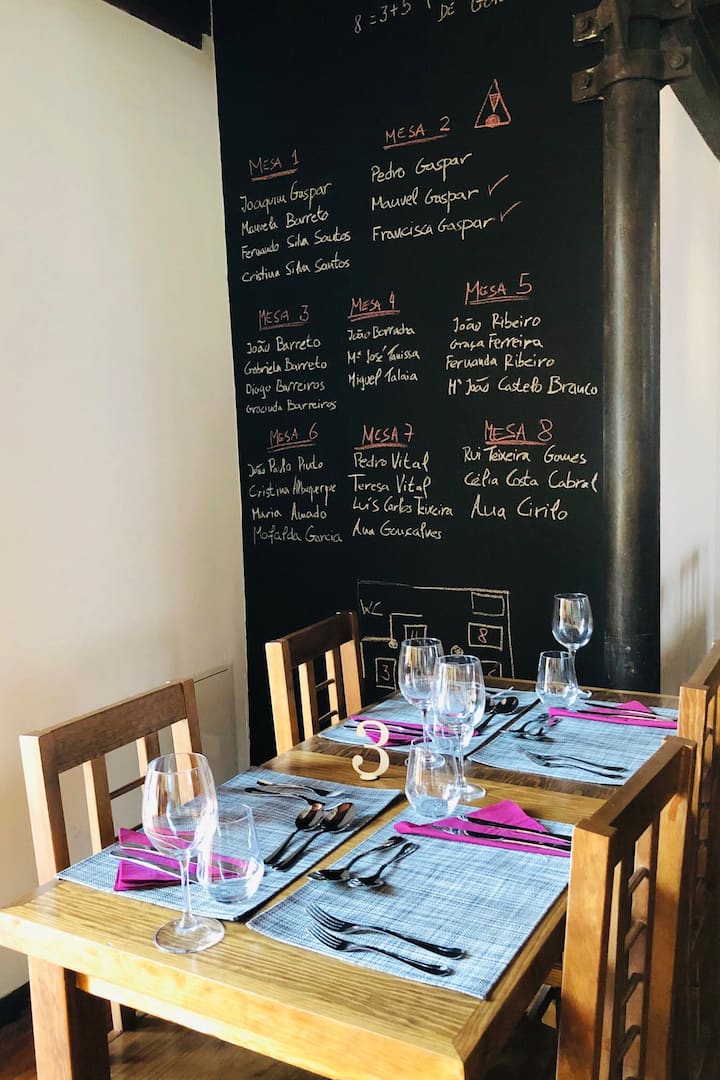 8=3+5
DE
MESA 1
Joaquim Gaspar
Manuela Barreto
Fernando Silva Santos
Cristina Silva Santos
MESA 2
Pedro Gaspar
Manuel Gaspar ✓
Francisca Gaspar ✓
MESA 3
João Barreto
Gabriela Barreto
Diogo Barreiros
Graciuda Barreiros
MESA 4
João Borracha
Mª José Tanissa
Miguel Talaia
MESA 5
João Ribeiro
Graça Ferreira
Fernanda Ribeiro
Mª João Castelo Branco
MESA 6
João Paulo Pinto
Cristina Albuquerque
Maria Amado
Mafalda Garcia
MESA 7
Pedro Vital
Teresa Vital
Luís Carlos Teixeira
Ana Gonçalves
MESA 8
Rui Teixeira Gomes
Célia Costa Cabral
Ana Cirilo
WC
8
3
3